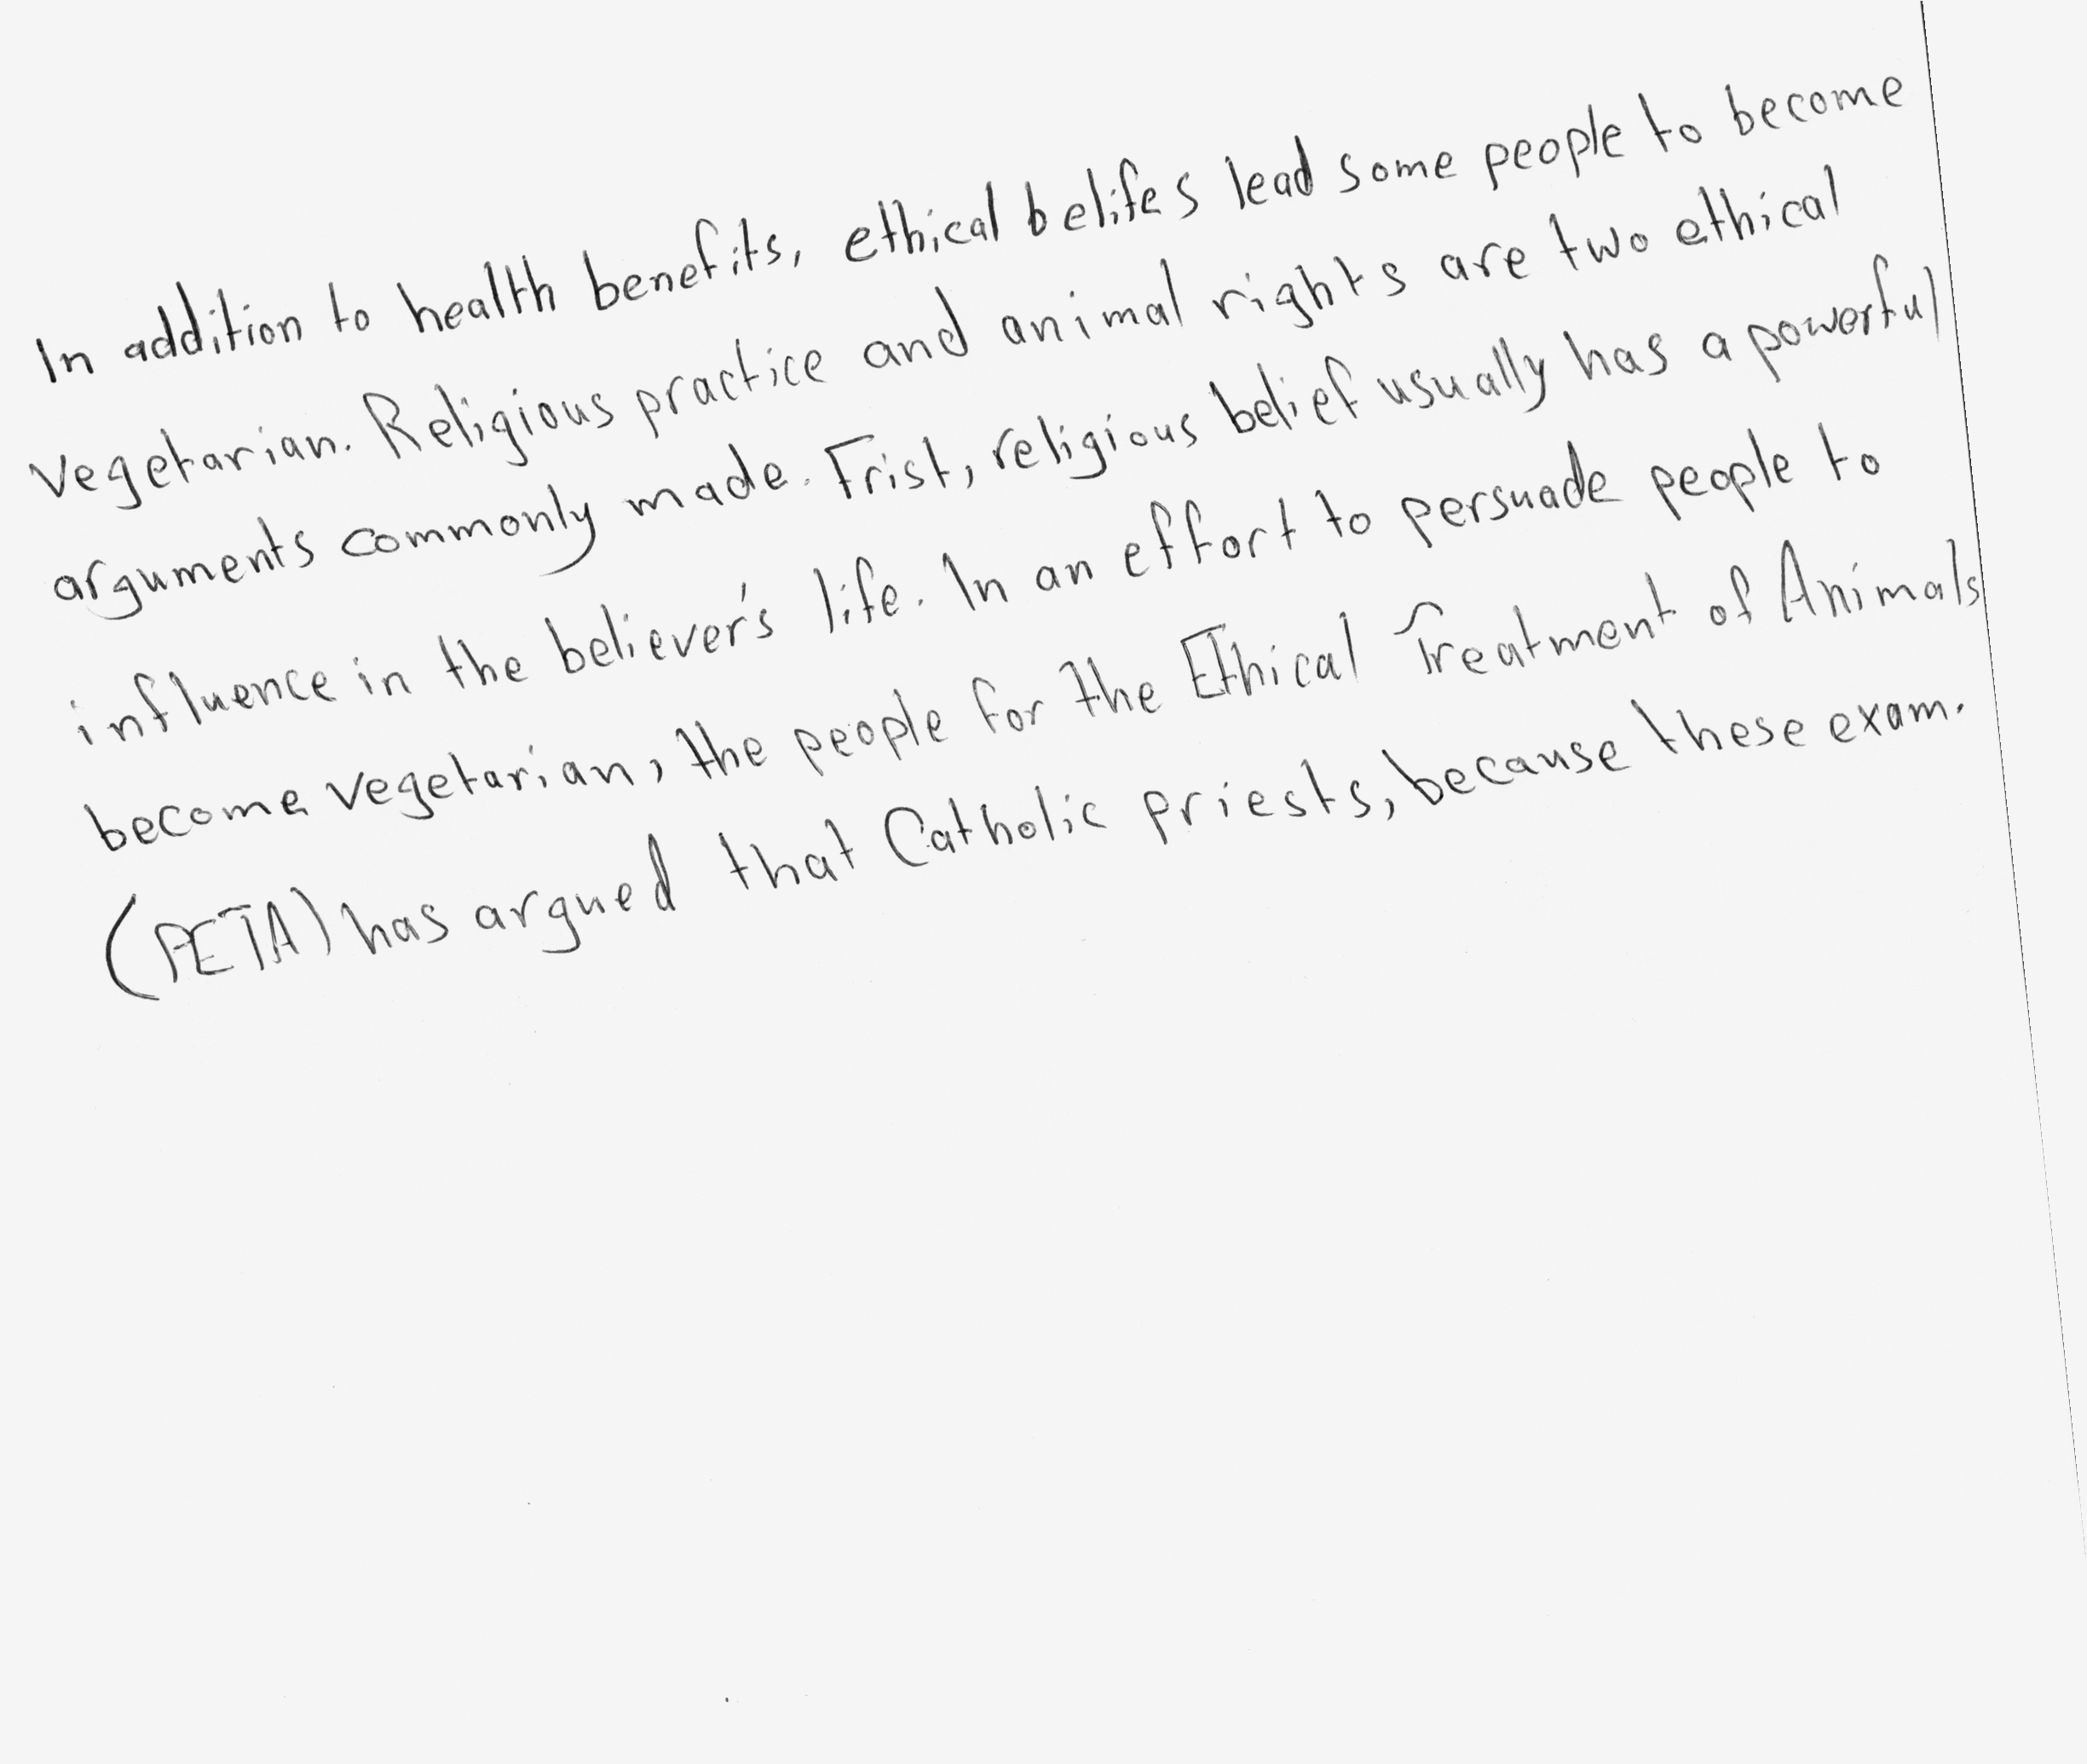 In addition to health benefits, ethical belifes lead some people to become
vegetarian. Religious practice and animal rights are two ethical
arguments commonly made. Frist, religious belief usually has a powerful
influence in the believer's life. In an effort to persuade people to
become vegetarian, the people for the Ethical Treatment of Animals
(PETA) has argued that Catholic priests, because these exam.